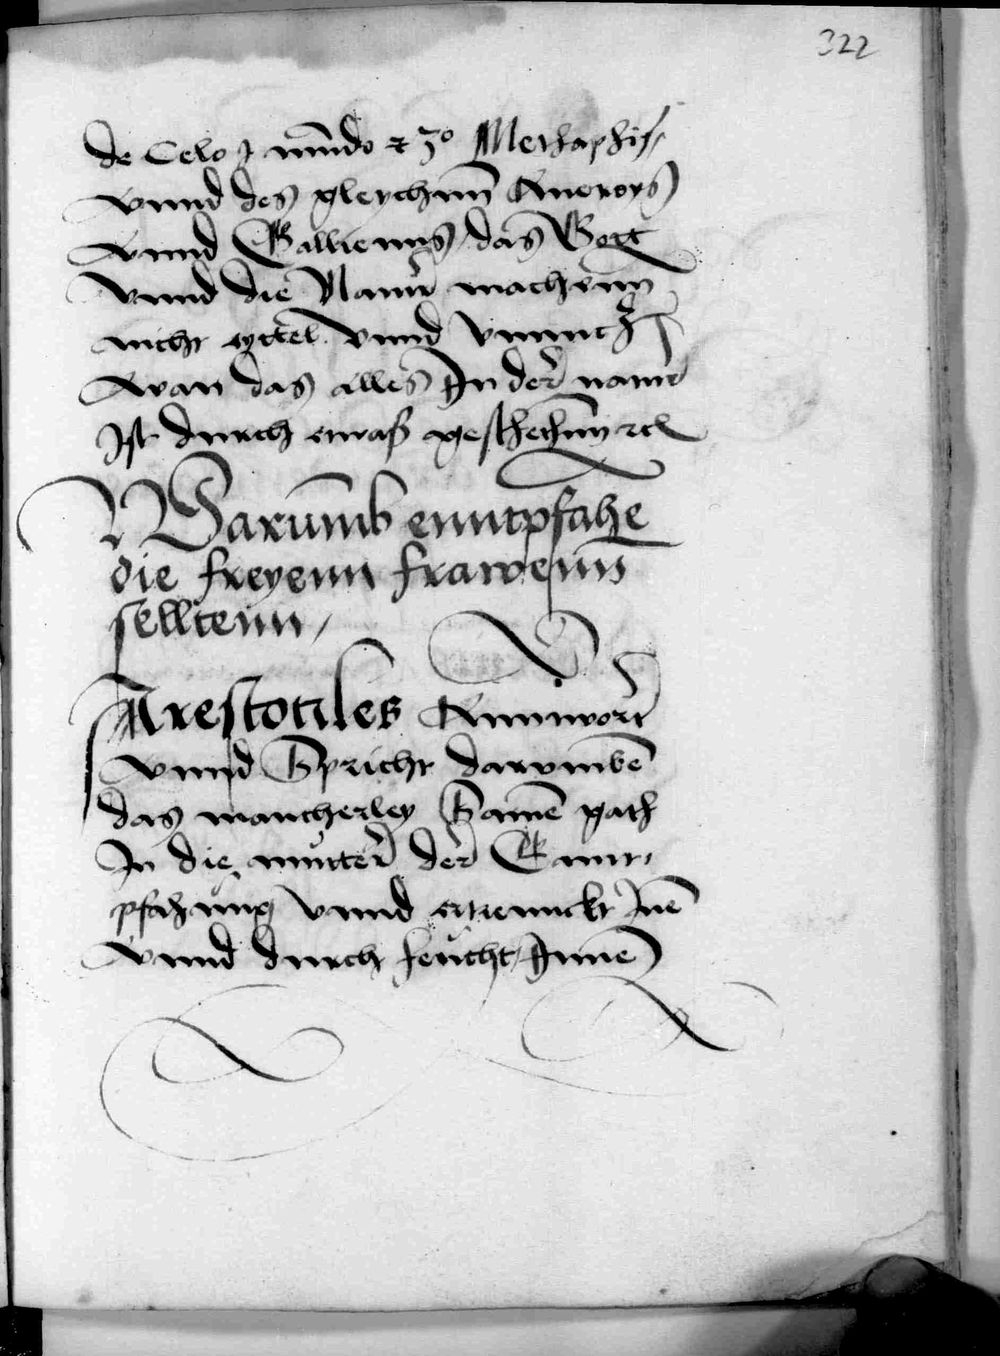 322
de Celo et mu͠ndo et 3º Methaphiſ
vnnd des gleychnn͠ Aueroys
vnnd Gallienus / das Gott
vnnd die Natur machenn
nicht eyttel vnnd vnnutz
wan das alles In der natur
Ist durch ettwaß gescheh͠nn ꝛc
Waru͠mb enntpfahe͠
die freyenn frawenn͠
sellttenn /
Arestotiles Anntwort
vnnd Spricht darumbe͠
das mancherley Same͠ gath
In die mutter der Ennt,
pfahung vnnd ertrennckt Ine͠
vnnd durch feucht / Inne͠